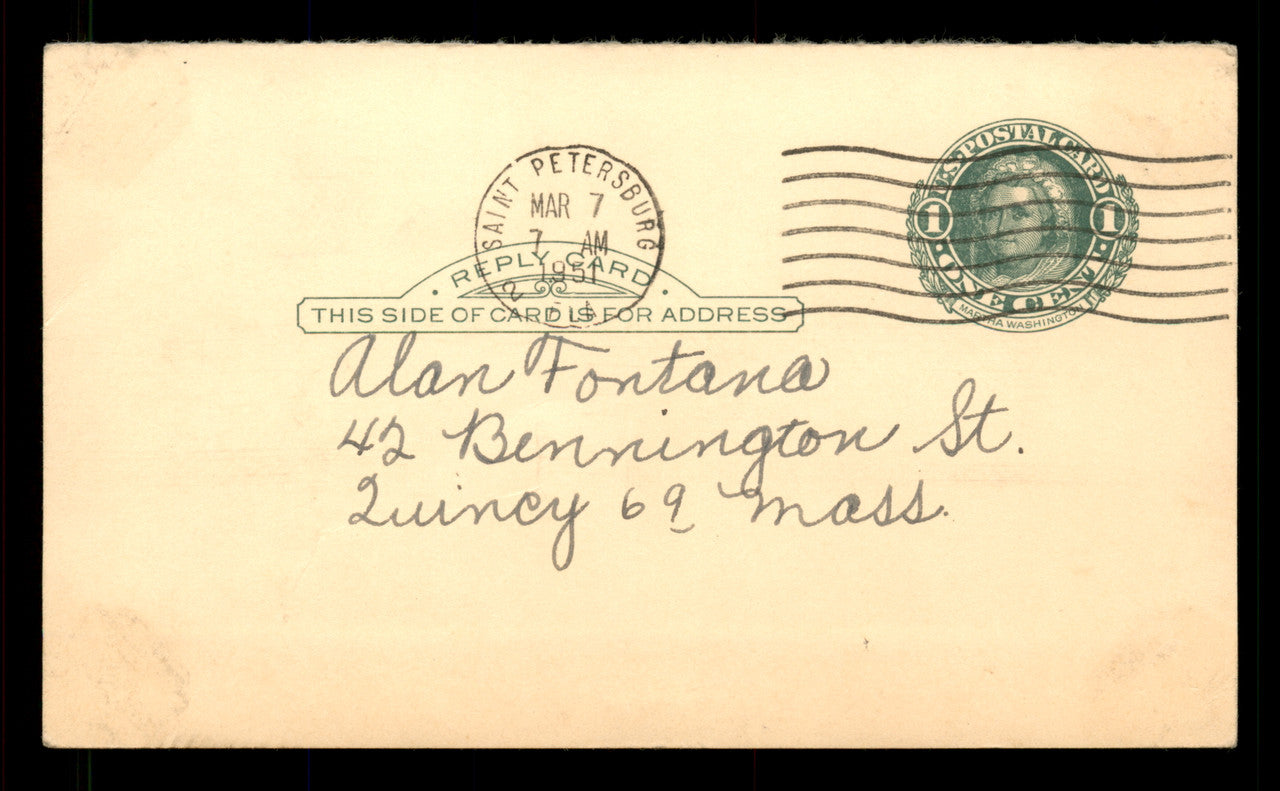 U.S. POSTAL CARD
1 1
ONE CENT
MARTHA WASHINGTON
SAINT PETERSBURG
MAR 7
7 AM
1951
2
REPLY CARD
THIS SIDE OF CARD IS FOR ADDRESS
Alan Fontana
42 Bennington St.
Quincy 69 Mass.